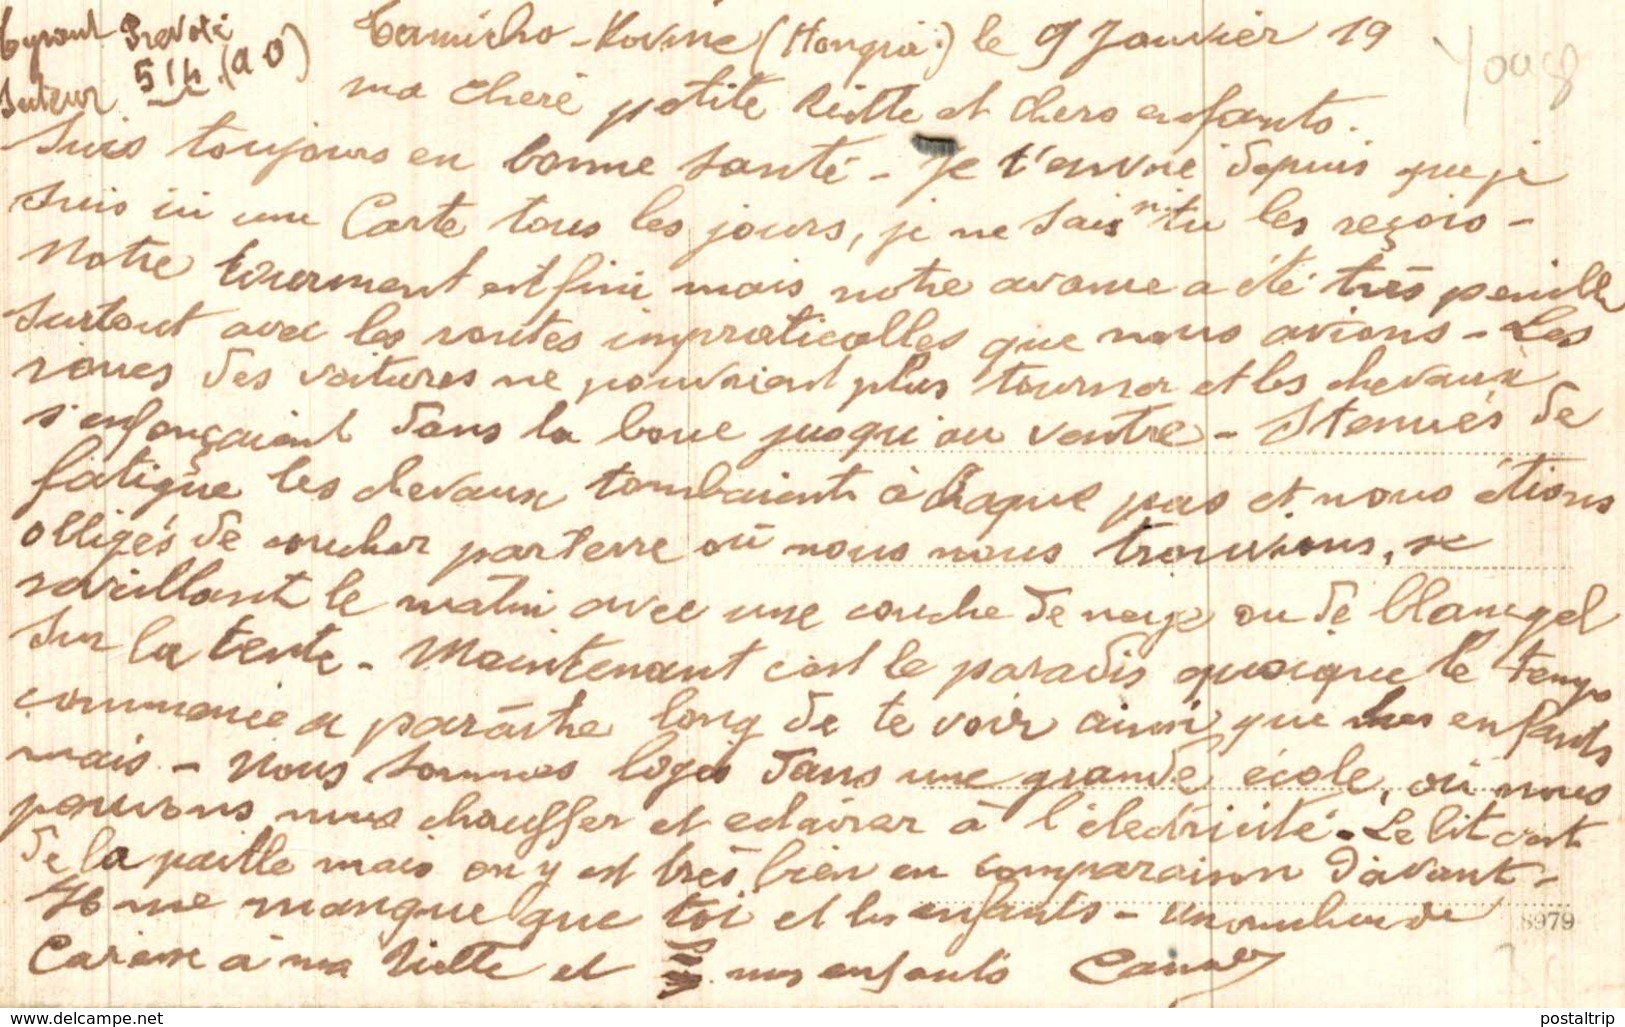 Prévôté
51h (a o)
(Hongrie) le 9 Janvier 19
ma chère petite Riette et chers enfants.
Suis toujours en bonne santé - Je t'envoie depuis que je
suis ici une Carte tous les jours, je ne sais si tu les reçois -
Notre tourment est fini mais notre avance a été très penible
surtout avec les routes impraticables que nous avions - Les
roues des voitures ne pouvaient plus tourner et les chevaux
s'enfonçaient dans la boue jusqu'au ventre - Extenués de
fatigue les chevaux tombaient à chaque pas et nous étions
obligés de coucher parterre où nous nous trouvions, se
reveillant le matin avec une couche de neige ou de blanc gel
sur la tente - Maintenant c'est le paradis quoique le temps
commence a paraitre long de te voir ainsi que mes enfants
mais - Nous sommes logés dans une grande école, où nous
pouvons nous chauffer et eclairer à l'électricité - Le lit c'est
de la paille mais on y est très bien en comparaison d'avant -
Il me manque que toi et les enfants - Un nombre de
Caresse à ma Riette et mes enfants
8979
www.delcampe.net
postaltrip